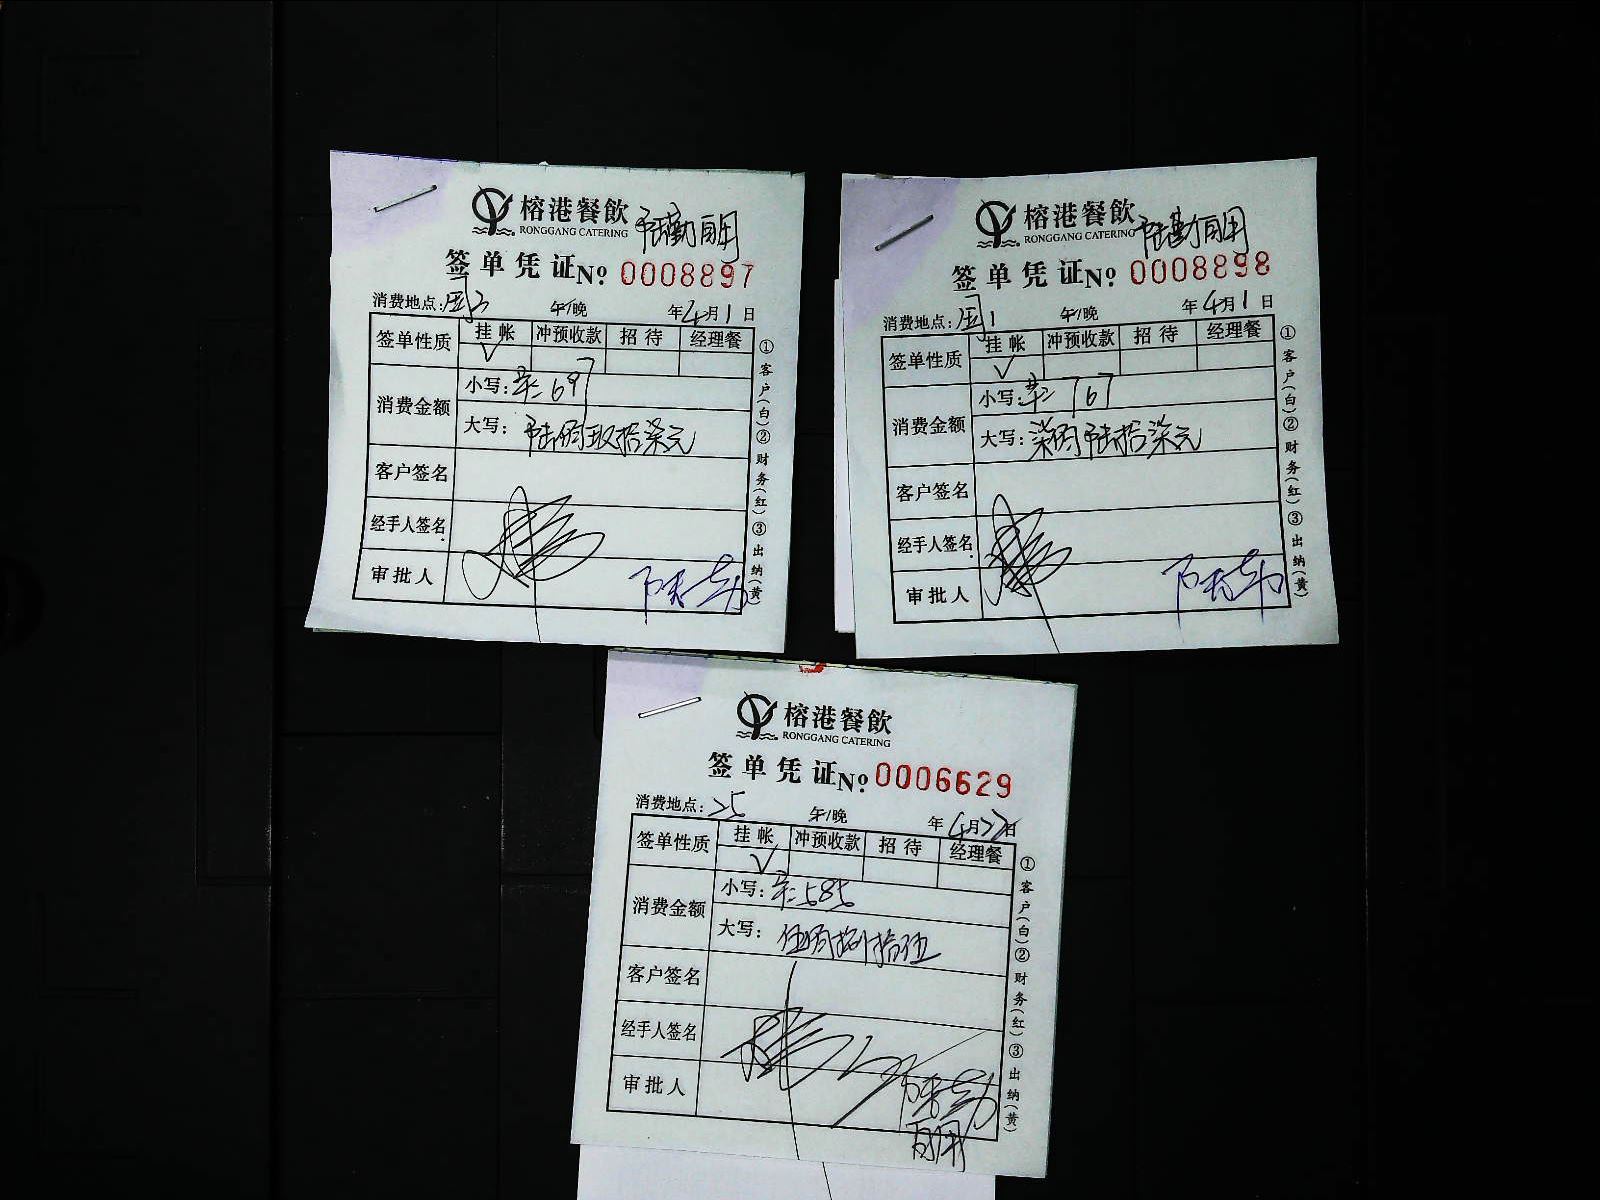 榕港餐飲
RONGGANG CATERING
签单凭证 No 0008897
消费地点: 午/晚 年4月1日
签单性质 挂帐 冲预收款 招待 经理餐
√
消费金额 小写: 697
大写: 陆佰玖拾柒元
客户签名
经手人签名
审批人
①客户(白)②财务(红)③出纳(黄)
榕港餐飲
RONGGANG CATERING
签单凭证 No 0008898
消费地点: 午/晚 年4月1日
签单性质 挂帐 冲预收款 招待 经理餐
√
消费金额 小写: 767
大写: 柒佰陆拾柒元
客户签名
经手人签名
审批人
①客户(白)②财务(红)③出纳(黄)
榕港餐飲
RONGGANG CATERING
签单凭证 No 0006629
消费地点: 25 午/晚 年4月22日
签单性质 挂帐 冲预收款 招待 经理餐
√
消费金额 小写: 585
大写: 伍佰捌拾伍
客户签名
经手人签名
审批人
①客户(白)②财务(红)③出纳(黄)